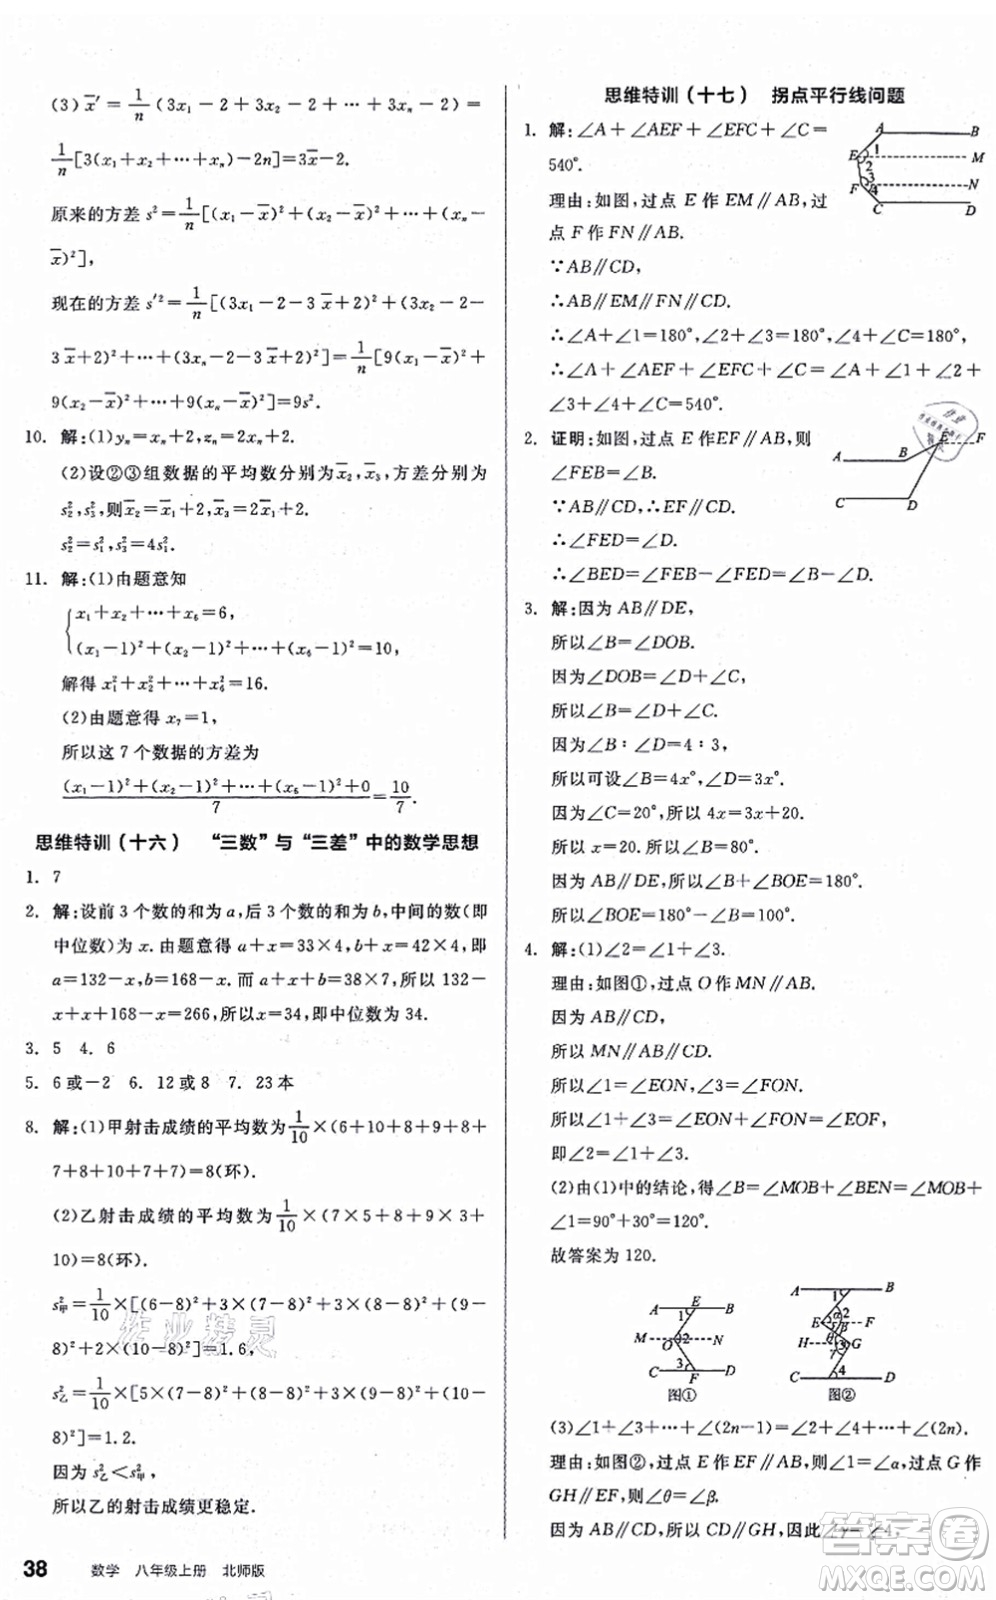 (3) x̄′=1/n(3x₁-2+3x₂-2+…+3xₙ-2)=
1/n[3(x₁+x₂+…+xₙ)-2n]=3x̄-2.
原来的方差 s²=1/n[(x₁-x̄)²+(x₂-x̄)²+…+(xₙ-
x̄)²],
现在的方差 s′²=1/n[(3x₁-2-3x̄+2)²+(3x₂-2-
3x̄+2)²+…+(3xₙ-2-3x̄+2)²]=1/n[9(x₁-x̄)²+
9(x₂-x̄)²+…+9(xₙ-x̄)²]=9s².
10. 解:(1)yₙ=xₙ+2,zₙ=2xₙ+2.
(2)设②③组数据的平均数分别为x̄₂,x̄₃,方差分别为
s₂²,s₃²,则x̄₂=x̄₁+2,x̄₃=2x̄₁+2.
s₂²=s₁²,s₃²=4s₁².
11. 解:(1)由题意知
{x₁+x₂+…+x₆=6,
(x₁-1)²+(x₂-1)²+…+(x₆-1)²=10,
解得 x₁²+x₂²+…+x₆²=16.
(2)由题意得 x₇=1,
所以这 7 个数据的方差为
((x₁-1)²+(x₂-1)²+…+(x₆-1)²+0)/7=10/7.
思维特训(十六) “三数”与“三差”中的数学思想
1. 7
2. 解:设前 3 个数的和为 a,后 3 个数的和为 b,中间的数(即
中位数)为 x. 由题意得 a+x=33×4,x+b=42×4,即
a=132-x,b=168-x. 而 a+x+b=38×7,所以 132-
x+x+168-x=266,所以 x=34,即中位数为 34.
3. 5 4. 6
5. 6或-2 6. 12或8 7. 23本
8. 解:(1)甲射击成绩的平均数为1/10×(6+10+8+9+8+
7+8+10+7+7)=8(环).
(2)乙射击成绩的平均数为1/10×(7×5+8+9×3+
10)=8(环).
s甲²=1/10×[(6-8)²+3×(7-8)²+3×(8-8)²+(9-
8)²+2×(10-8)²]=1.6,
s乙²=1/10×[5×(7-8)²+(8-8)²+3×(9-8)²+(10-
8)²]=1.2.
因为 s乙²<s甲²,
所以乙的射击成绩更稳定.
38 数学 八年级上册 北师版
思维特训(十七) 拐点平行线问题
1. 解:∠A+∠AEF+∠EFC+∠C=
540°.
理由:如图,过点 E 作 EM∥AB,过
点 F 作 FN∥AB.
∵AB∥CD,
∴AB∥EM∥FN∥CD.
∴∠A+∠1=180°,∠2+∠3=180°,∠4+∠C=180°,
∴∠A+∠AEF+∠EFC+∠C=∠A+∠1+∠2+
∠3+∠4+∠C=540°.
A B
E 1 M
2
3 N
F 4
C D
2. 证明:如图,过点 E 作EF∥AB,则
∠FEB=∠B.
∵AB∥CD,∴EF∥CD.
∴∠FED=∠D.
∴∠BED=∠FEB-∠FED=∠B-∠D.
E F
A B
C D
3. 解:因为 AB∥DE,
所以∠B=∠DOB.
因为∠DOB=∠D+∠C,
所以∠B=∠D+∠C.
因为∠B∶∠D=4∶3,
所以可设∠B=4x°,∠D=3x°.
因为∠C=20°,所以 4x=3x+20.
所以 x=20. 所以∠B=80°.
因为 AB∥DE,所以∠B+∠BOE=180°.
所以∠BOE=180°-∠B=100°.
4. 解:(1)∠2=∠1+∠3.
理由:如图①,过点 O 作 MN∥AB.
因为 AB∥CD,
所以 MN∥AB∥CD.
所以∠1=∠EON,∠3=∠FON.
所以∠1+∠3=∠EON+∠FON=∠EOF,
即∠2=∠1+∠3.
(2)由(1)中的结论,得∠B=∠MOB+∠BEN=∠MOB+
∠1=90°+30°=120°.
故答案为 120.
A E B
1
M O 2 N
C 3 F D
图①
A B
1
E 2 F
θ β
H 3 G
γ
C 4 D
图②
(3)∠1+∠3+…+∠(2n-1)=∠2+∠4+…+∠(2n).
理由:如图②,过点 E 作 EF∥AB,…,过点 G 作
GH∥EF,则∠θ=∠β.
因为 AB∥CD,所以 CD∥GH,因此∠γ=∠4,
作业精灵
答案卷